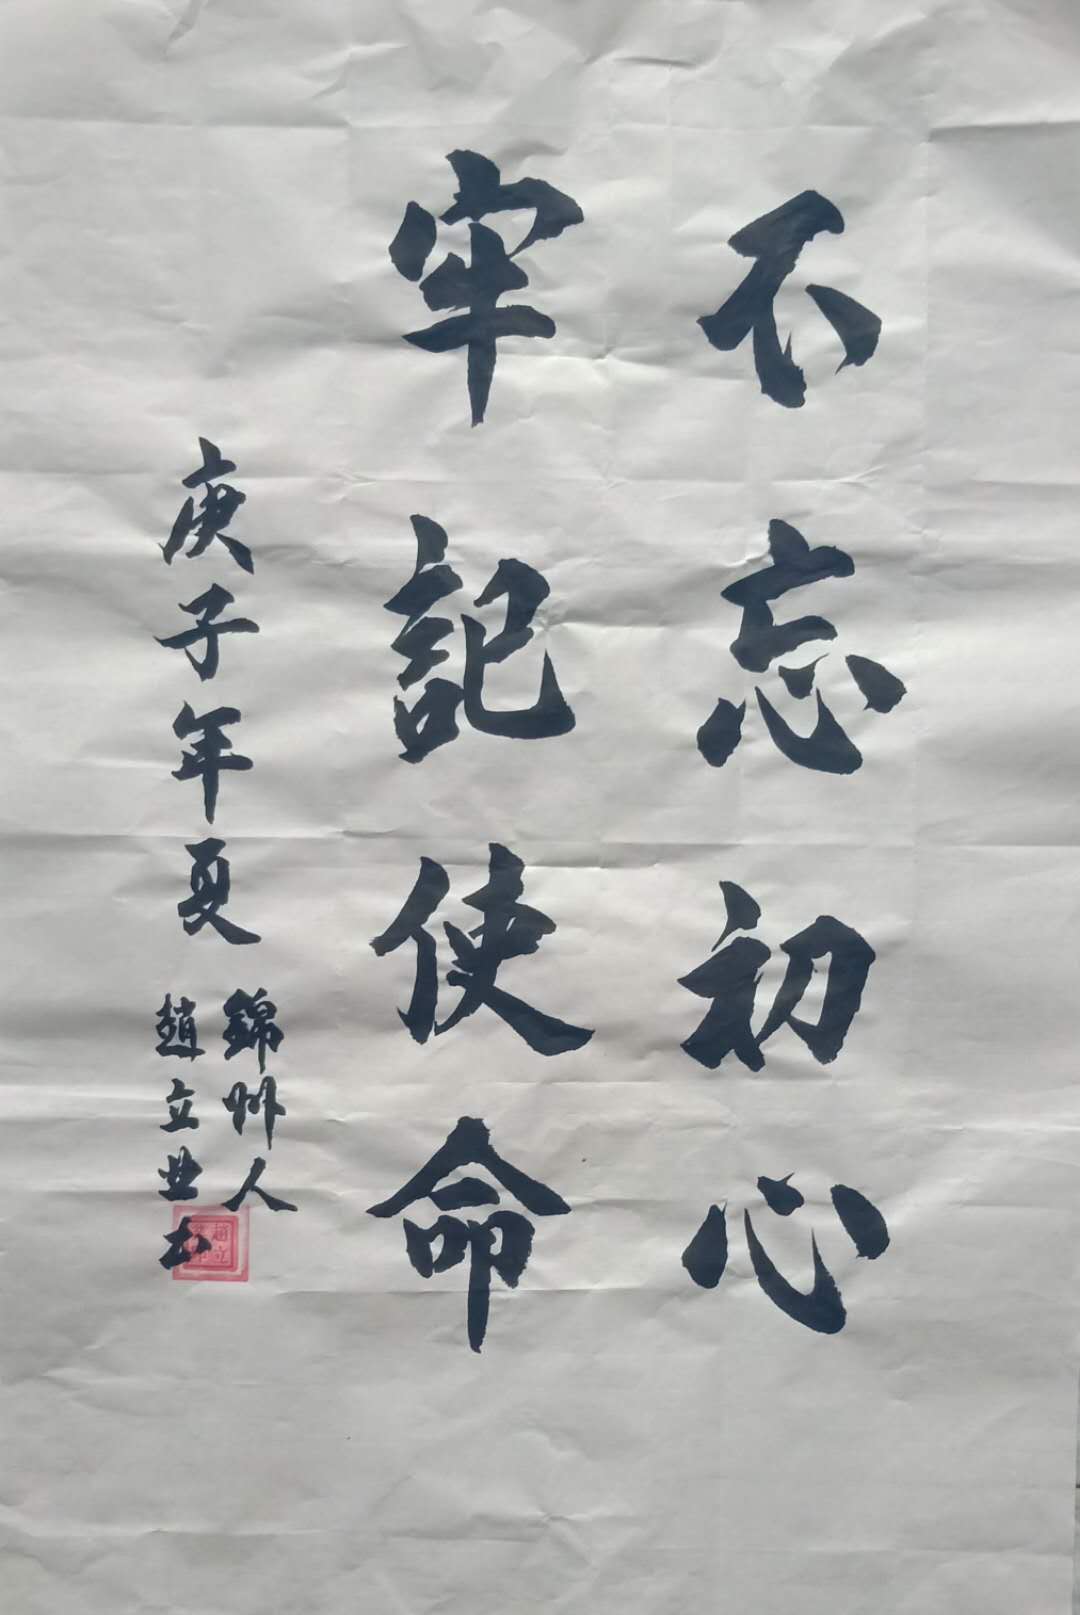 不忘初心
牢記使命
庚子年夏
錦州人
趙立业书